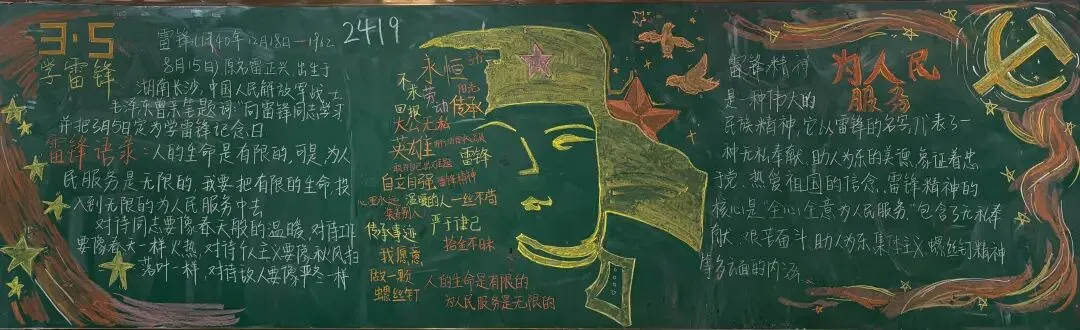 3·5
学雷锋
雷锋(1940年12月18日—1962
8月15日)原名雷正兴,出生于
湖南长沙,中国人民解放军战士
毛泽东曾亲笔题词"向雷锋同志学习
并把3月5日定为学雷锋纪念日
雷锋语录:人的生命是有限的,可是,为人
民服务是无限的,我要把有限的生命,投
入到无限的为人民服务中去
对待同志要像春天般的温暖,对待工作
要像春天一样火热,对待个人主义要像秋风扫
落叶一样,对待敌人要像严冬一样
2419
永恒
不求劳动
阳光
回报
传承
大公无私
英雄
雷锋
自立自强
雷锋精神
温暖的人一丝不苟
传承事迹
严于律己
我愿意
拾金不昧
做一颗
螺丝钉
人的生命是有限的
为人民服务是无限的
雷锋精神
为人民
服务
是一种伟大的
民族精神,它以雷锋的名字代表了一
种无私奉献、助人为乐的美德,象征着忠
于党、热爱祖国的信念,雷锋精神的
核心是"全心全意为人民服务"包含了无私奉
献、艰苦奋斗、助人为乐、集体主义、螺丝钉精神
等多方面的内涵